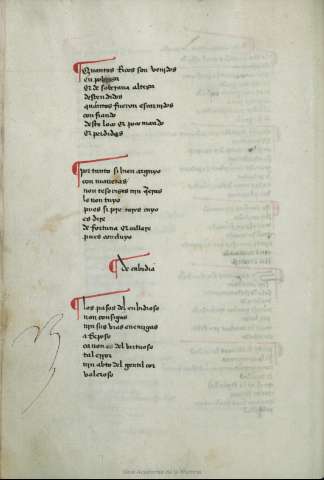 Quantos Ricos son venidos
en pobreza
Et de soberana alteza
desçendidos
quantos fueron escarnidos
confiando
deste loco Et poco mando
Et perdidos
por tanto si bien arguyo
con maneras
non te
lo non tuyo
pues si pre
es dize
de fortuna Et
pues concluyo
de enbidia
los pasos del enbidioso
non consigas
nin sus vias enemigas
a Reposo
ca non es del birtuoso
tal error
nin abto del gentil cor
valeroso
Real Academia de la Historia